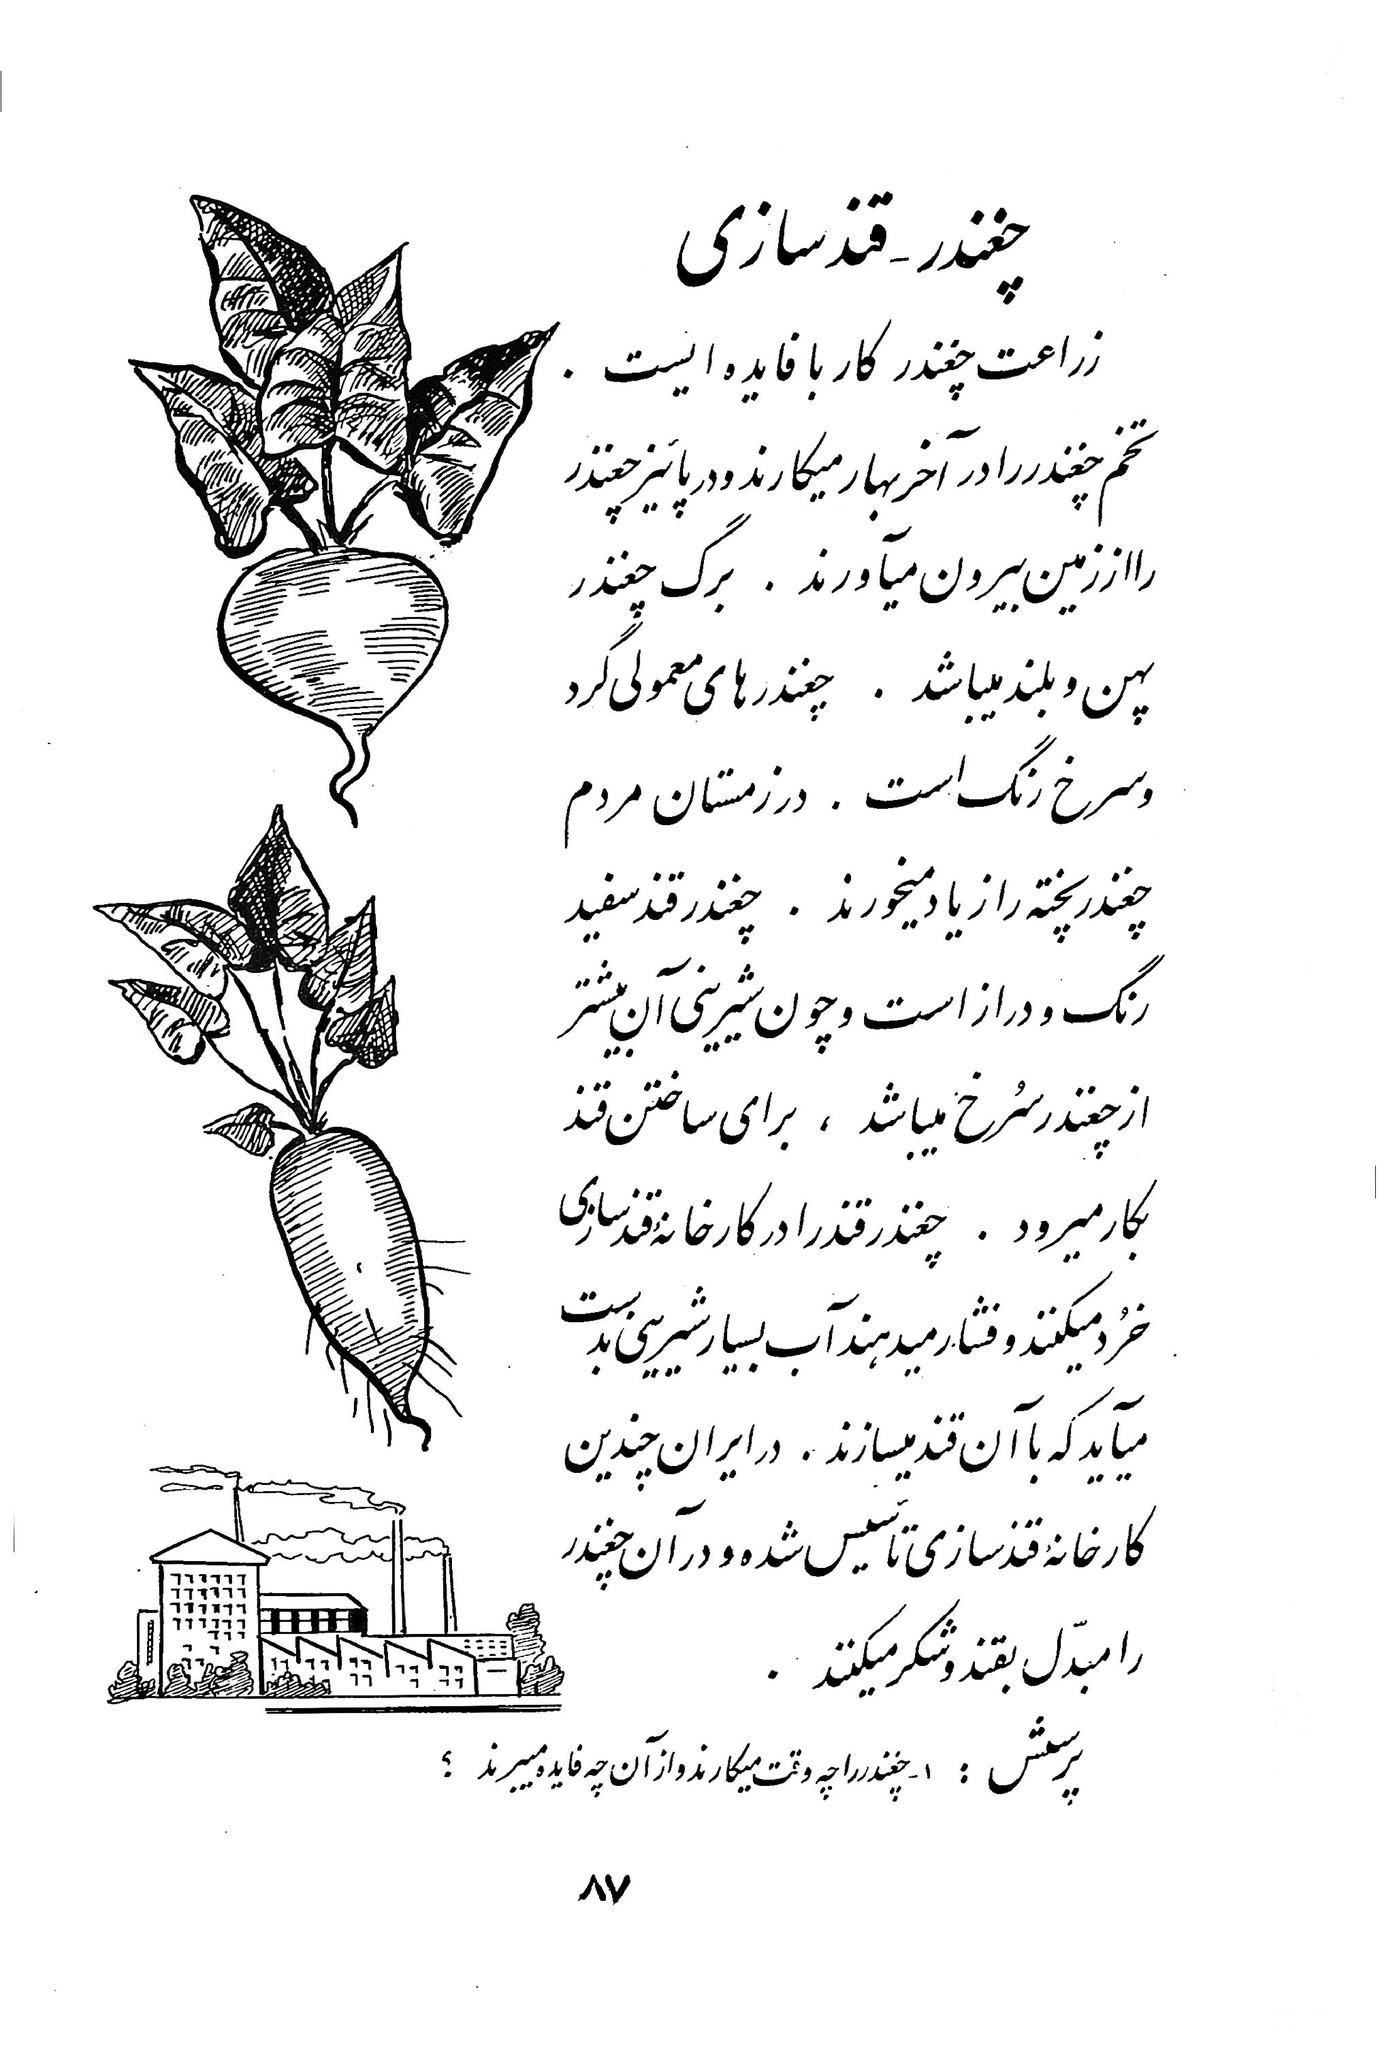 چغندر - قندسازی
زراعت چغندر کار با فایده ایست .
تخم چغندر را در آخر بهار میکارند و در پائیز چغندر
را از زمین بیرون میآورند . برگ چغندر
پهن و بلند میباشد . چغندرهای معمولی گرد
و سرخ رنگ است . در زمستان مردم
چغندر پخته را زیاد میخورند . چغندر قند سفید
رنگ و دراز است و چون شیرینی آن بیشتر
از چغندر سُرخ میباشد ، برای ساختن قند
بکار میرود . چغندر قند را در کارخانهٔ قندسازی
خُرد میکنند و فشار میدهند آب بسیار شیرینی بدست
میآید که با آن قند میسازند . در ایران چندین
کارخانهٔ قندسازی تأسیس شده و در آن چغندر
را مبدّل بقند و شکر میکنند .
پرسش : ۱- چغندر را چه وقت میکارند و از آن چه فایده میبرند ؟
۸۷